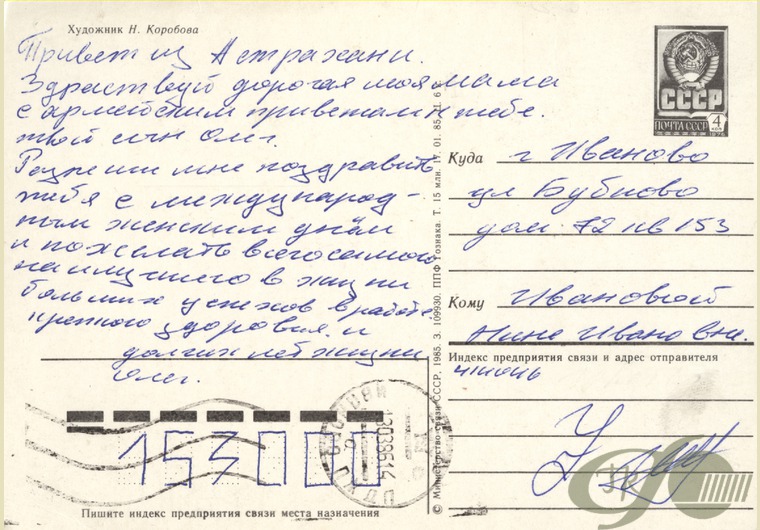 Художник Н. Коробова
Привет из Астрахани.
Здраствуй дорогая моя мама
с армейским приветам к тебе.
твой сын Олег.
Разреши мне поздравить
тебя с международ-
ным женским днём
и пожелать всего самого
наилучшего в жизни
больших успехов в работе
крепкого здоровия и
долгих лет жизни
Олег.
153000
Пишите индекс предприятия связи места назначения
© Министерство связи СССР, 1985. З. 109930. ППФ Гознака. Т. 15 млн. 01. 85.
СССР
ПОЧТА СССР
4
Куда г Иваново
ул Бубново
дом 72 кв 153
Кому Ивановой
Нине Ивановне.
Индекс предприятия связи и адрес отправителя